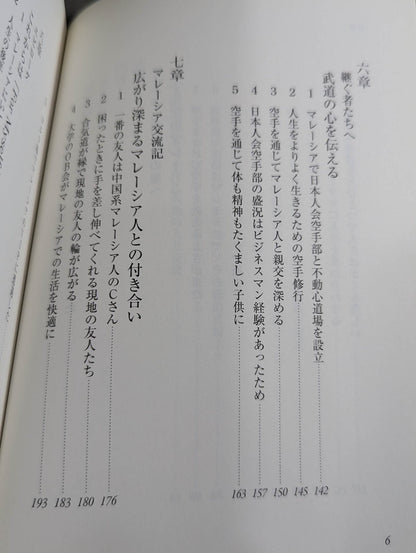 六章
継ぐ者たちへ
武道の心を伝える
1 マレーシアで日本人会空手部と不動心道場を設立 142
2 人生をよりよく生きるための空手修行 145
3 空手を通じてマレーシア人と親交を深める 150
4 日本人会空手部の盛況はビジネスマン経験があったため 157
5 空手を通じて体も精神もたくましい子供に 163
七章
マレーシア交流記
広がり深まるマレーシア人との付き合い
1 一番の友人は中国系マレーシア人のCさん 176
2 困ったときに手を差し伸べてくれる現地の友人たち 180
3 合気道が縁で現地の友人の輪が広がる 183
4 大学のOB会がマレーシアでの生活を快適に 193
6